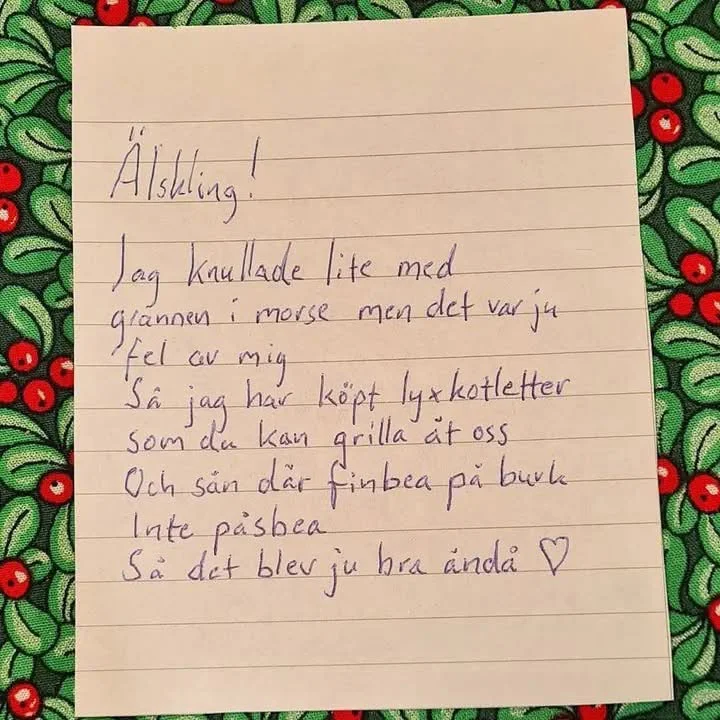 Älskling!
Jag knullade lite med
grannen i morse men det var ju
fel av mig
Så jag har köpt lyxkotletter
som du kan grilla åt oss
Och sån där finbea på burk
Inte påsbea
Så det blev ju bra ändå ♡